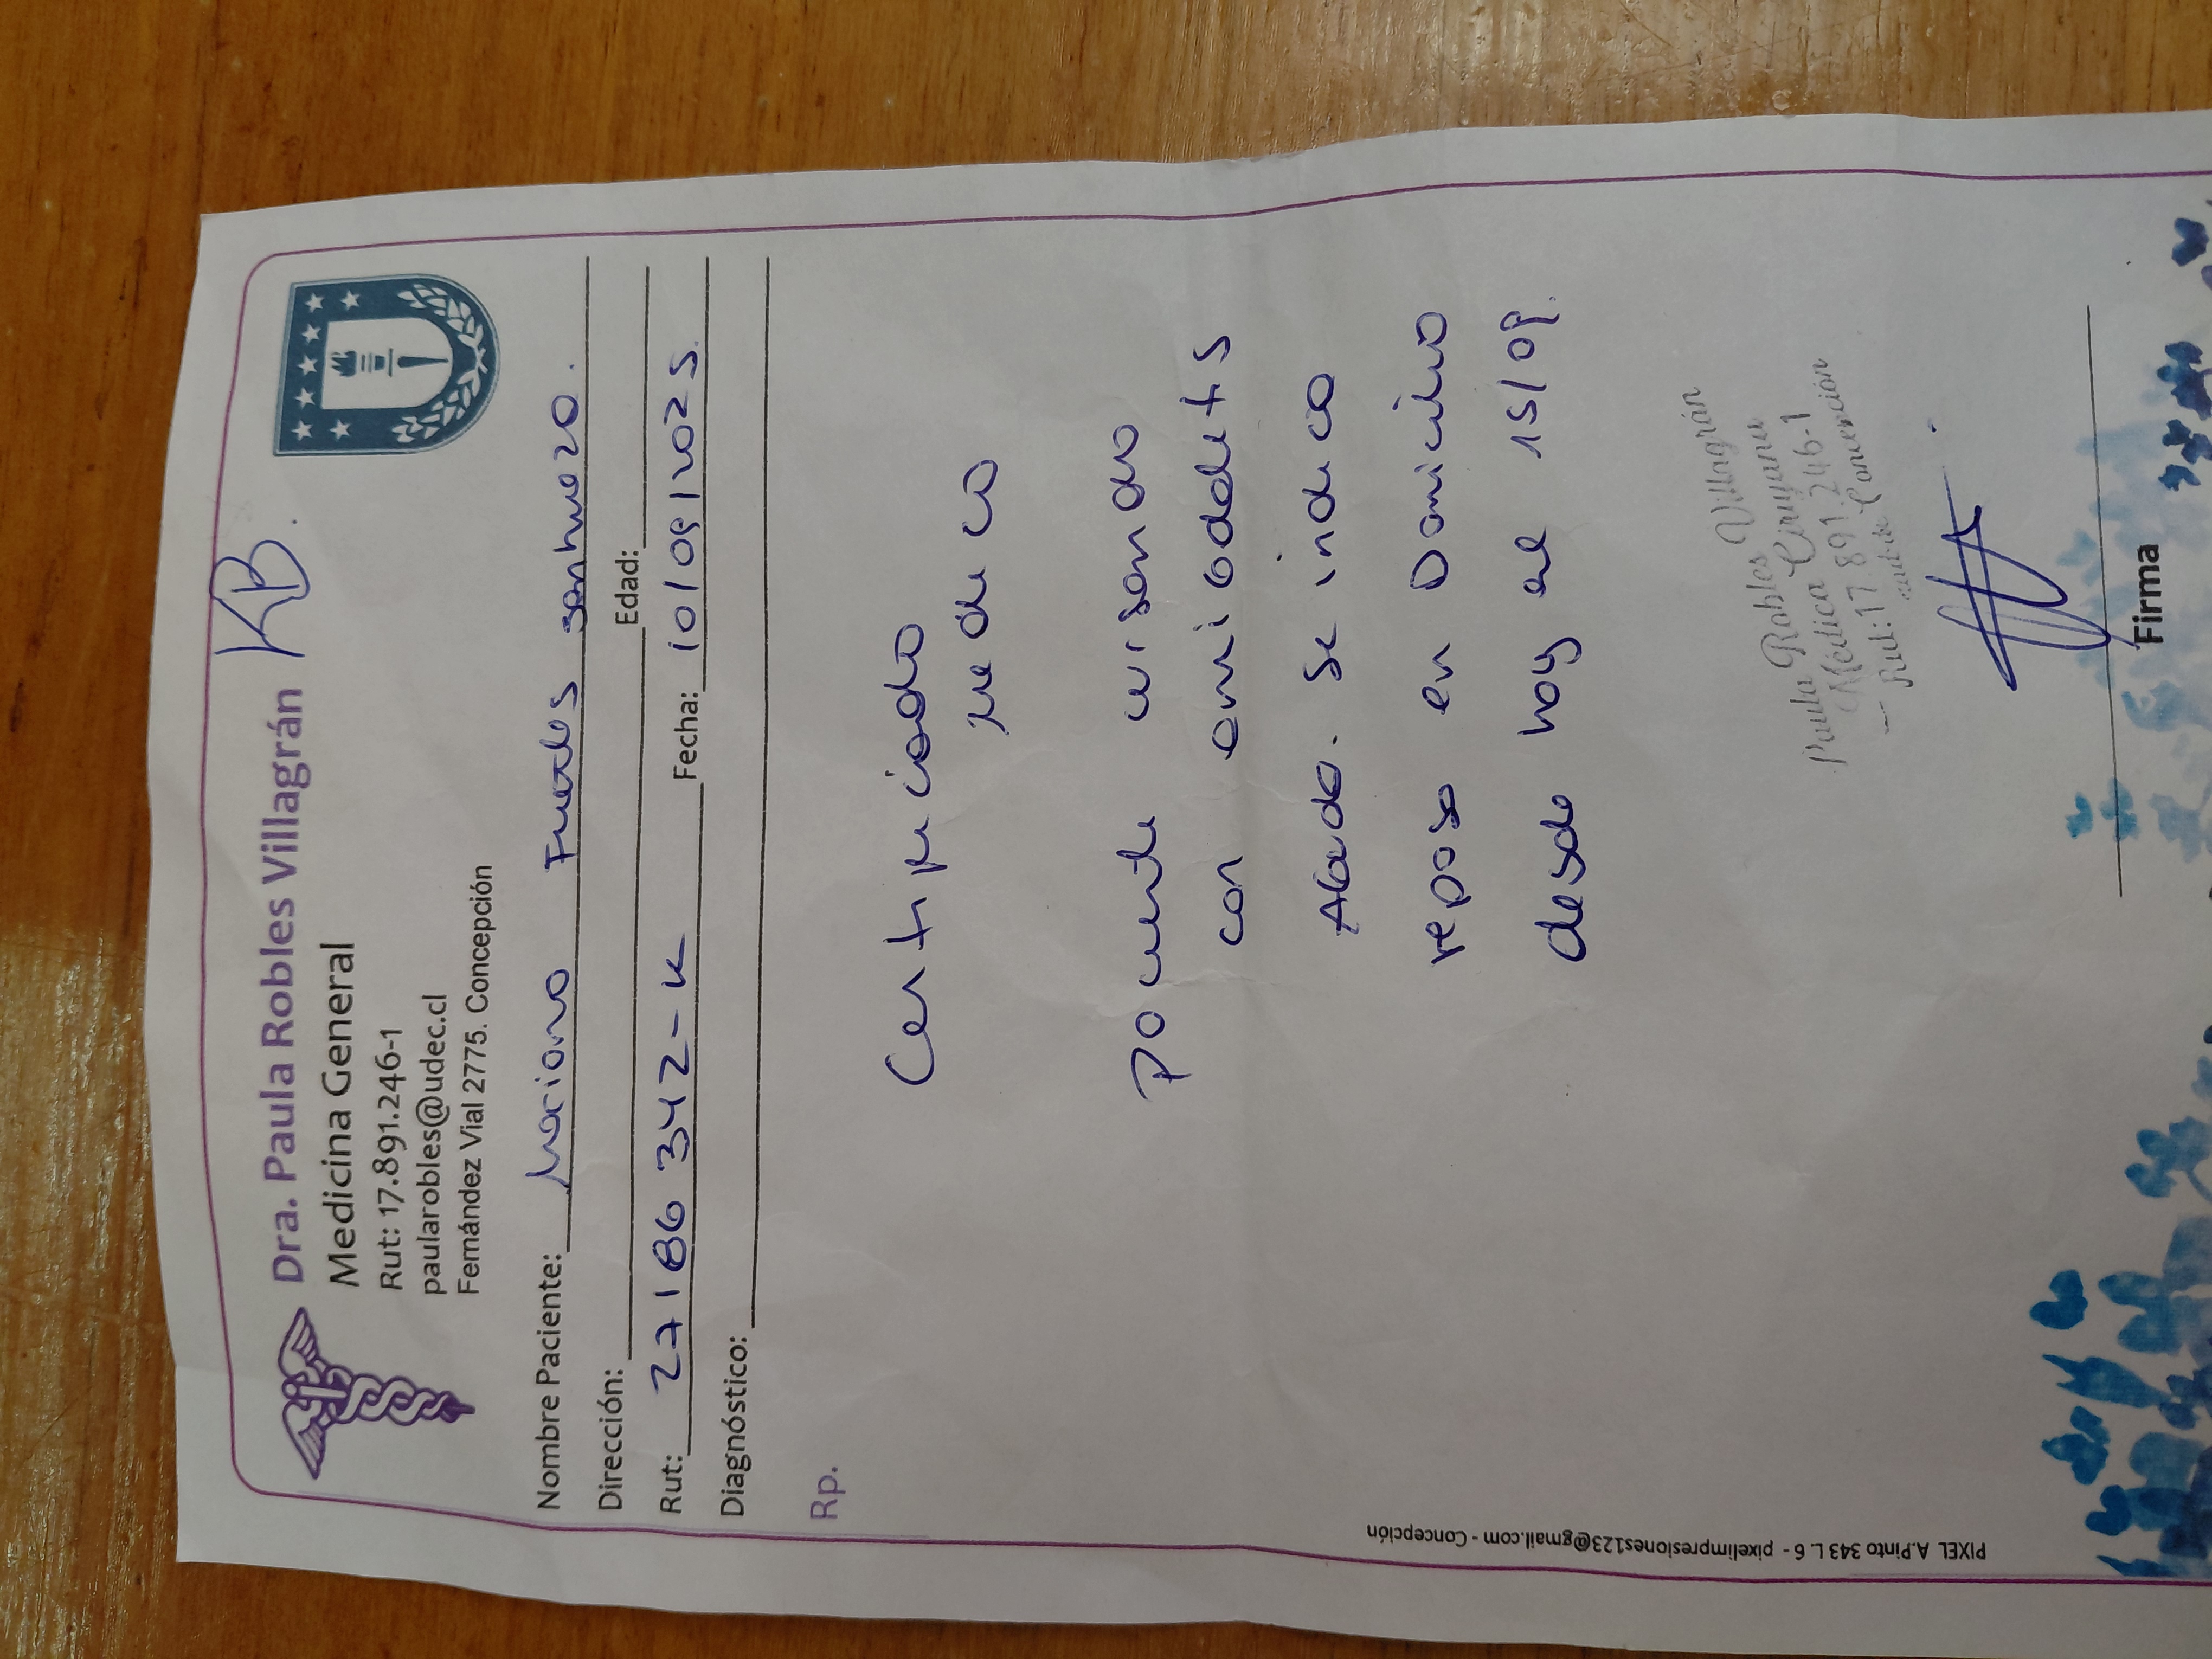 KB.
Dra. Paula Robles Villagrán
Medicina General
Rut: 17.891.246-1
paularobles@udec.cl
Fernández Vial 2775. Concepción
Nombre Paciente: Mariano Fuentes sanhueza.
Dirección: Edad:
Rut: 27186342-K Fecha: 10/09/2025.
Diagnóstico:
Rp.
Certificado
medico
Paciente cursando
con amigdalitis
Aguda. Se indica
reposo en Domicilio
desde hoy al 15/09.
Paula Robles Villagrán
Médica Cirujana
Rut: 17.891.246-1
Concepción
Firma
PIXEL A.Pinto 343 L. 6 - pixelimpresiones123@gmail.com - Concepción